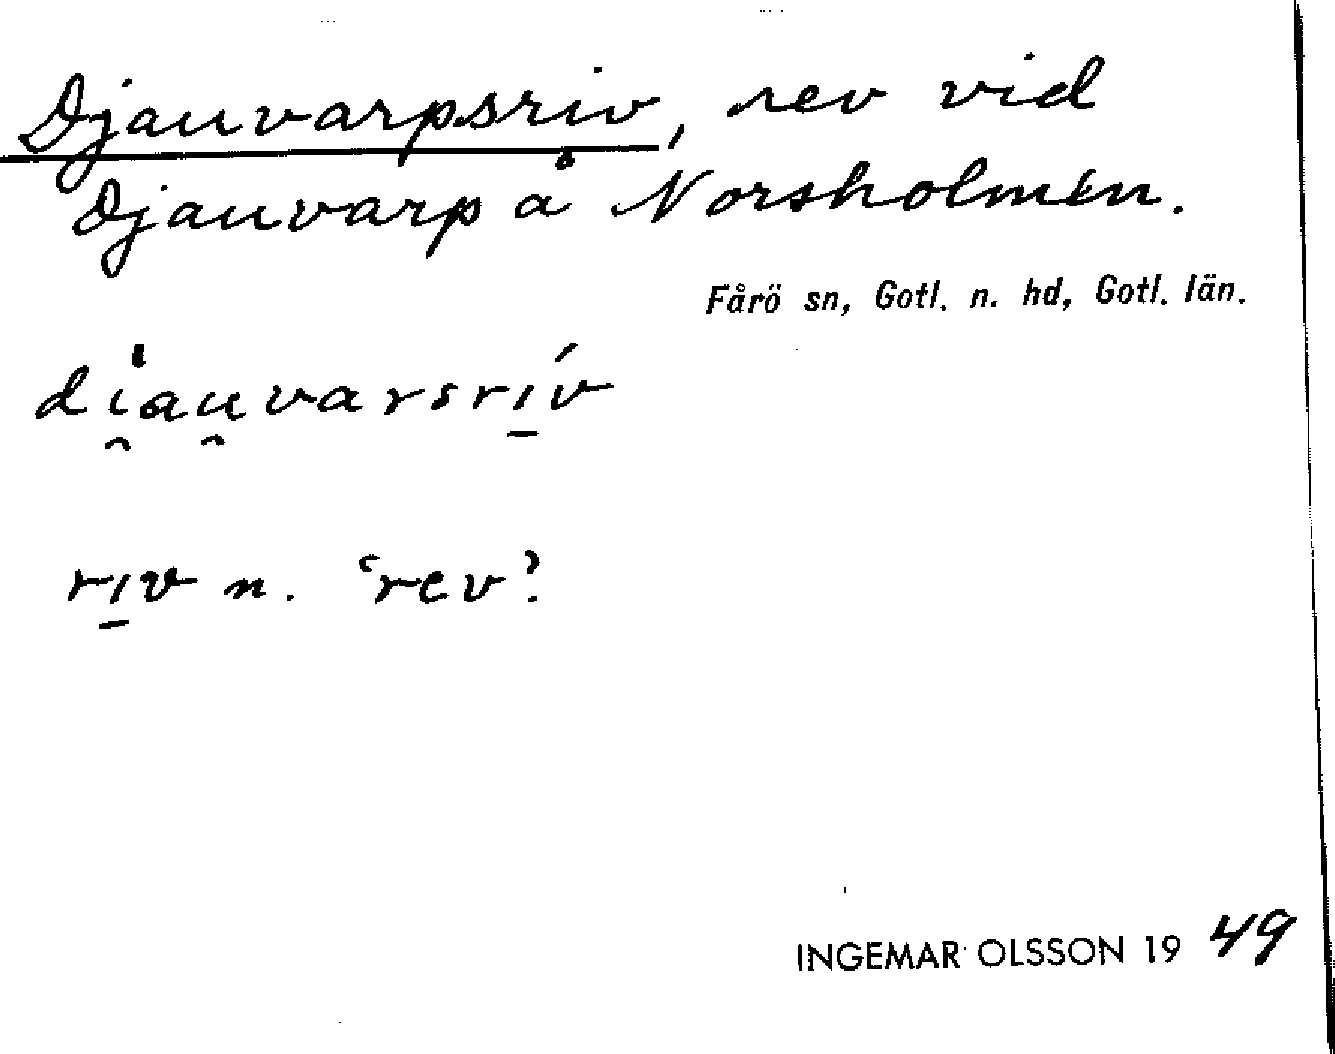 Djauvarpsriv, rev vid
Djauvarp å Norsholmen.
Fårö sn, Gotl. n. hd, Gotl. län.
di̯au̯varsri̱v
ri̱v n. ‘rev’.
INGEMAR OLSSON 19 49